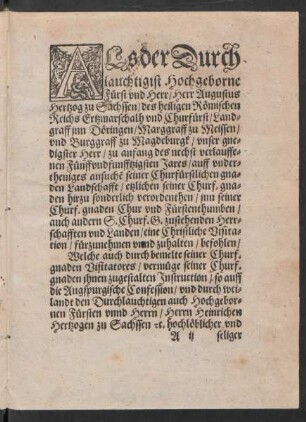 ALs der Durch
lauchtigist Hochgeborne
Fürst vnd Herr/ Herr Augustus
Hertzog zu Sachssen/ des heiligen Römischen
Reichs Ertzmarschalh vnd Churfürst/ Land-
graff jnn Döringen/ Marggraff zu Meissen/
vnd Burggraff zu Magdeburgk/ vnser gne-
digster Herr/ zu anfang des nechst verlauffe-
nen Fünffvndfunfftzigsten Jares/ auff vnder-
theniges ansuchē seiner Churfürstlichen gna-
den Landschafft/ etzlichen seiner Churf. gna-
den hirzu sonderlich verordenthen/ jnn seiner
Churf. gnaden Chur vnd Fürstenthumben/
auch andern S. Churf. G. zustehenden Herr-
schafften vnd Landen/ eine Christliche Visita-
tion/ fürzunehmen vnnd zuhalten/ befohlen/
Welche auch durch bemelte seiner Churf.
gnaden Visitatores/ vermüge seiner Churf.
gnaden jhnen zugestalten Instruction/ so auff
die Augspurgische Confession/ vnd durch wei-
landt den Durchlauchtigen auch Hochgebor-
nen Fürsten vnnd Herrn/ Herrn Heinrichen
Hertzogen zu Sachssen ꝛc. hochlöblicher vnd
A ij seliger